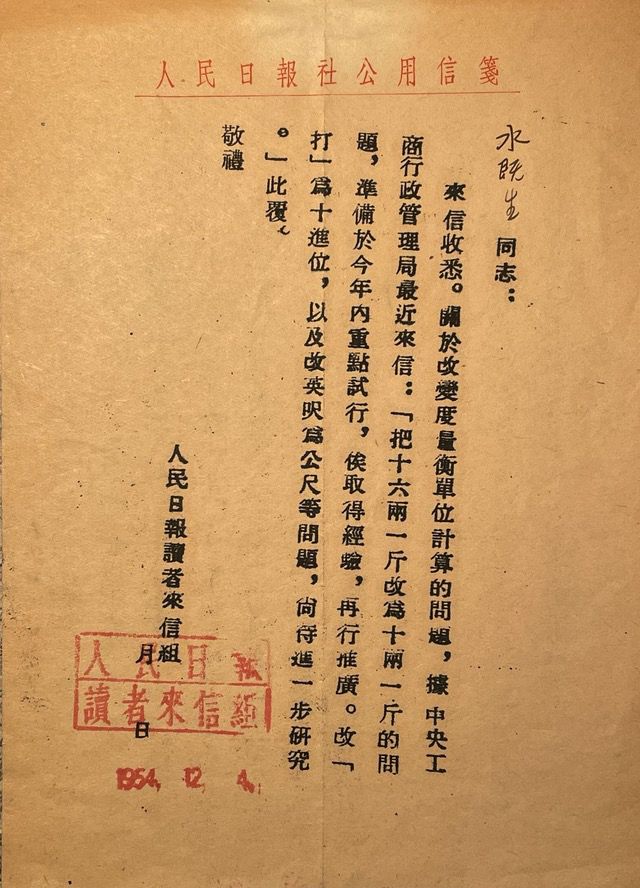 人民日報社公用信箋
水既生同志：
來信收悉。關於改變度量衡單位計算的問題，據中央工
商行政管理局最近來信：「把十六兩一斤改爲十兩一斤的問
題，準備於今年內重點試行，俟取得經驗，再行推廣。改「
打」爲十進位，以及改英呎爲公尺等問題，尚待進一步研究
。」此覆。
敬禮
人民日報讀者來信組
月
日
人民日報
讀者來信組
1954. 12. 4.